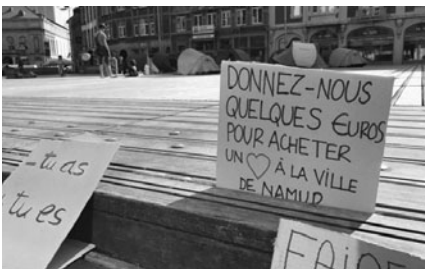 DONNEZ-NOUS
QUELQUES EUROS
POUR ACHETER
UN ♡ À LA VILLE
DE NAMUR
tu as
tu es